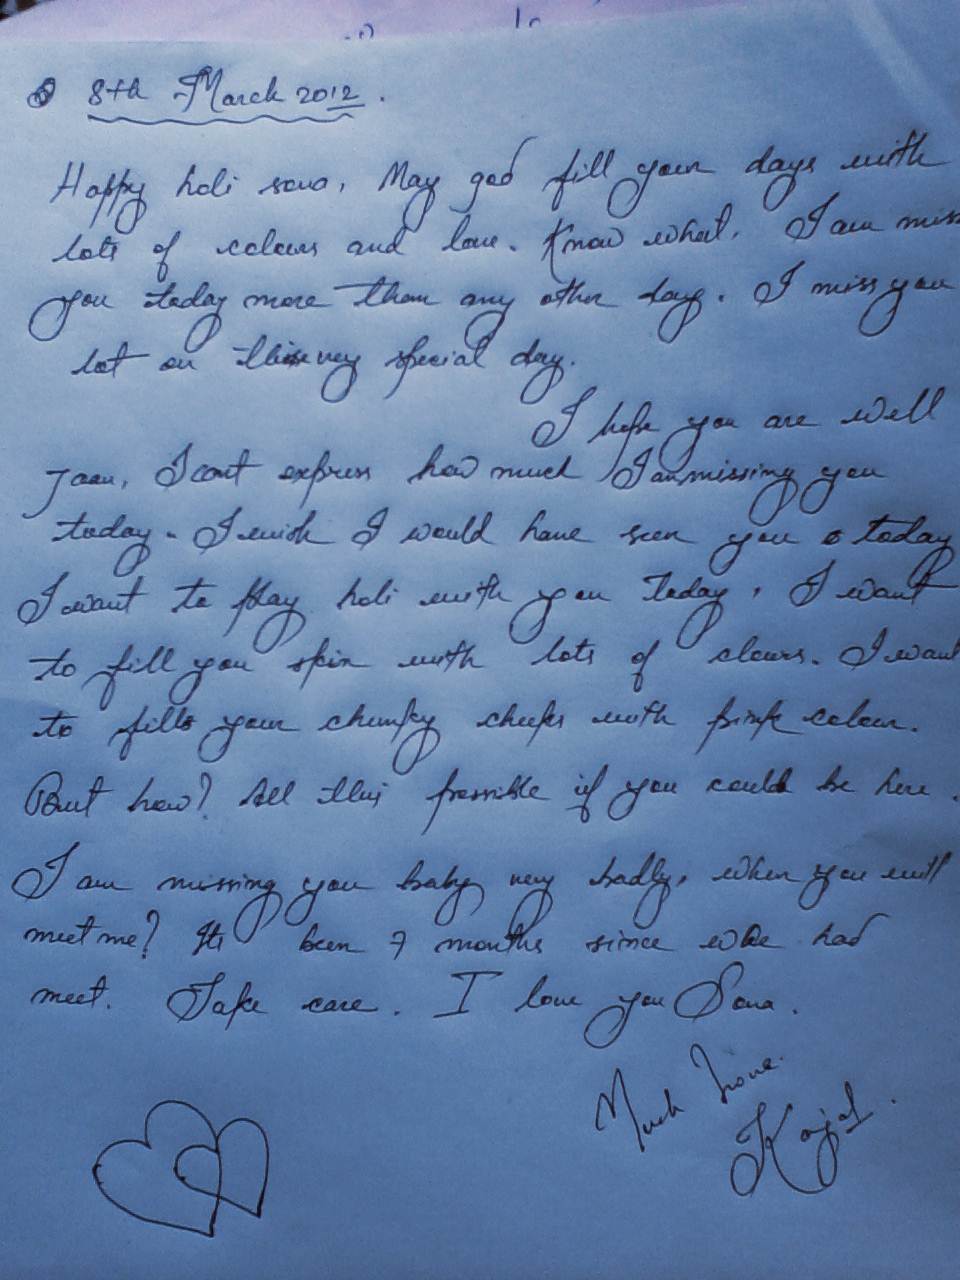 8th March 2012.
Happy holi sona, May god fill your days with
lots of colours and love. Know what, I am miss
you today more than any other day. I miss you
lot on this very special day.
I hope you are well
Jaan, I cant express how much I am missing you
today. I wish I would have seen you today
I want to play holi with you today, I want
to fill you skin with lots of clours. I want
to fill your chunky cheeks with pink colour.
But how? All this possible if you could be here.
I am missing you baby very badly, when you will
meet me? Its been 7 months since we had
meet. Take care. I love you Sona.
Much Love.
Kajal.